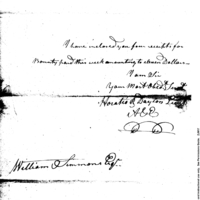 I have inclosed you four receipts for
Bounty paid this week amounting to eleven Dollars
I am Sir
Your Most Obed. Servt
Horatio Dayton Lieut
William Simmons Esqr.